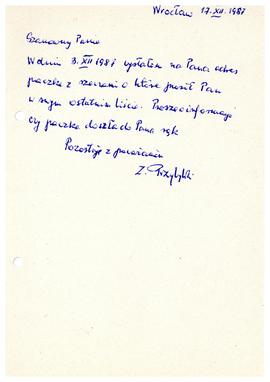 Wrocław 17.XII.1981
Szanowny Panie
W dniu 3.XII 1981 wysłałem na Pana adres
paczkę z rzeczami o które prosił Pan
w swym ostatnim liście. Proszę o informację
czy paczka doszła do Pana rąk
Pozostaję z poważaniem
Z.